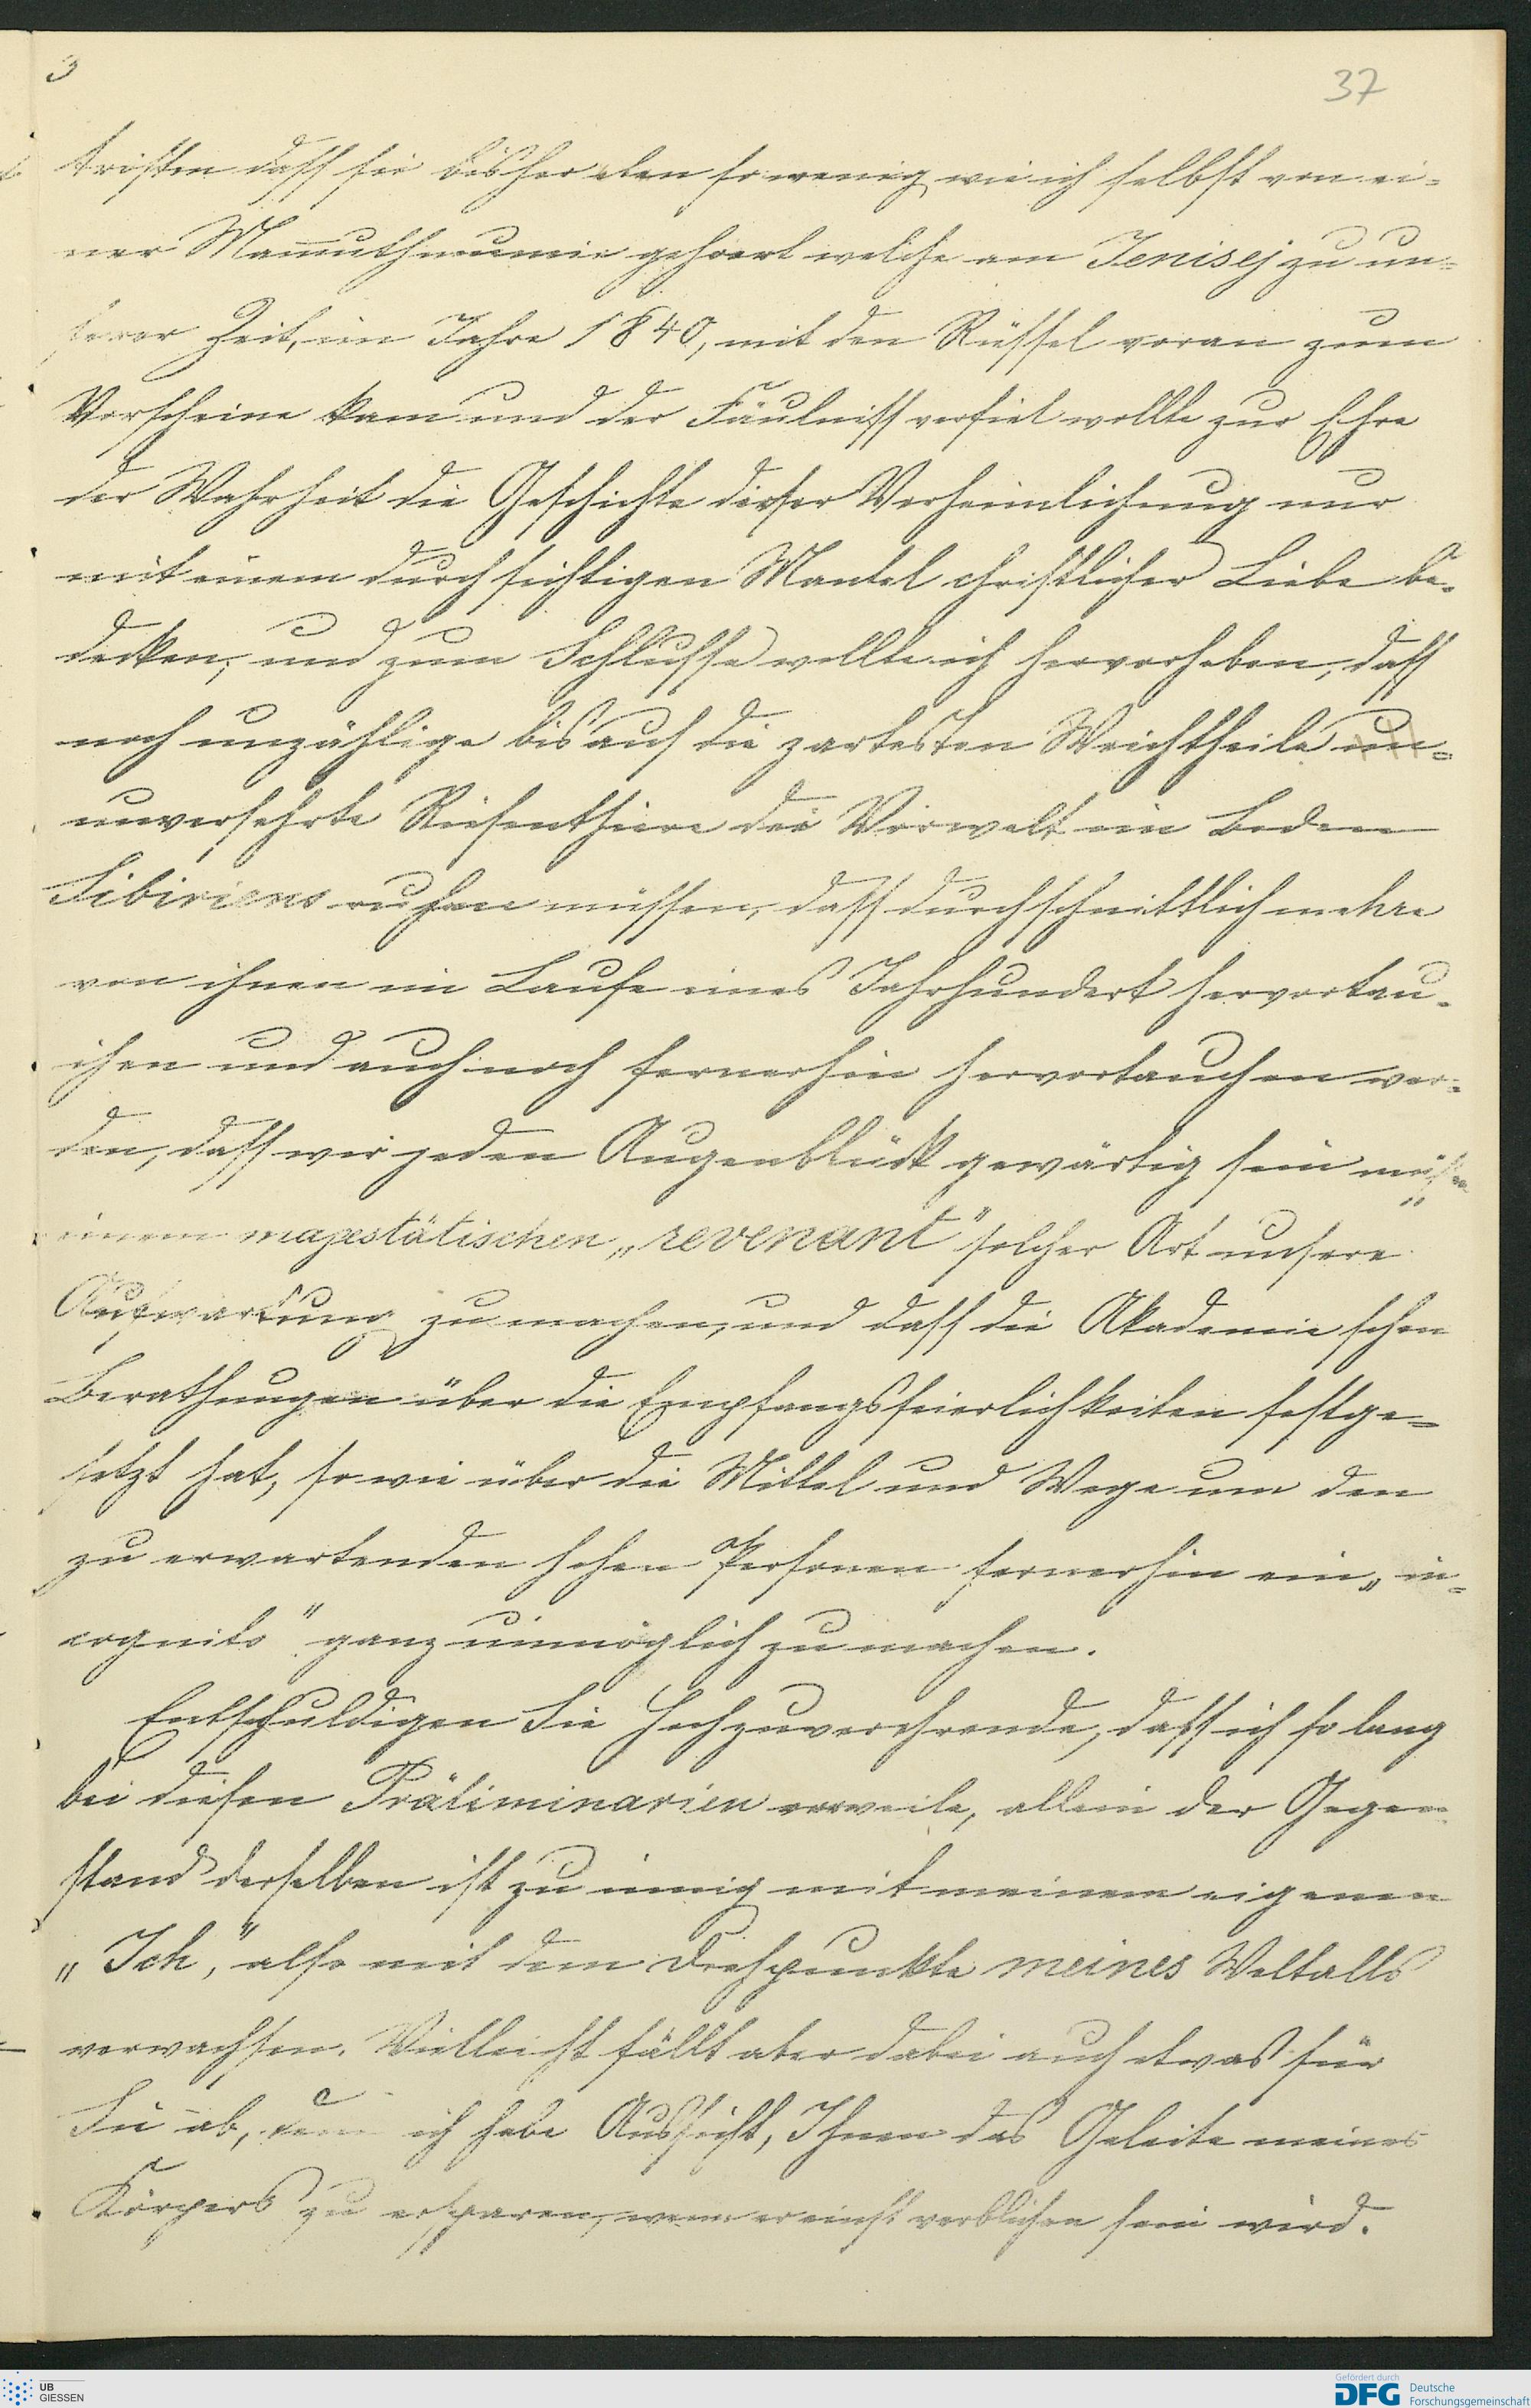 3
37
trösten dass sie bisher eben so wenig wie ich selbst von ei-
ner Mam̄uthmumie gehoert welche am Jenisej zu un-
serer Zeit, im Jahre 1840, mit den Rüssel voran zum
Vorscheine kam und der Fäulniss verfiel wollte zur Ehre
der Wahrheit die Geschichte dieser Verheimlichung nur
mit einem durchsichtigen Mantel christlicher Liebe be-
decken; und zum Schlusse wollte ich hervorheben, dass
noch unzählige bis auf die zartesten Weichtheile un-
unversehrte Riesenthiere der Vorwelt im Boden
Sibiriens ruhen müssen, dass durchschnittlich mehre
von ihnen im Laufe eines Jahrhundert hervortau-
chen und auch noch fernerhin hervortauchen wer-
den, dass wir jeden Augenblick gewärtig sein müssen
einem majestätischen „revenant" solcher Art unsere
Aufwartung zu machen, und dass die Akademie schon
Berathungen über die Empfangsfeierlichkeiten festge-
setzt hat, so wie über die Mittel und Wege um den
zu erwartenden hohen Personen fernerhin ein „in-
cognito" ganz unmöglich zu machen.
Entschuldigen Sie Hochzuverehrende, dass ich so lang
bei diesen Präliminarien verweile, allein der Gegen-
stand derselben ist zu innig mit meinem eigenen
„Ich," also mit dem Drehpunkte meines Weltalls
verwachsen. Vielleicht fällt aber dabei auch etwas für
Sie ab, denn ich habe Aussicht, Ihnen das Geleite meines
Körpers zu ersparen, wenn er einst verblichen sein wird.
UB
GIESSEN
Gefördert durch
DFG Deutsche
Forschungsgemeinschaft